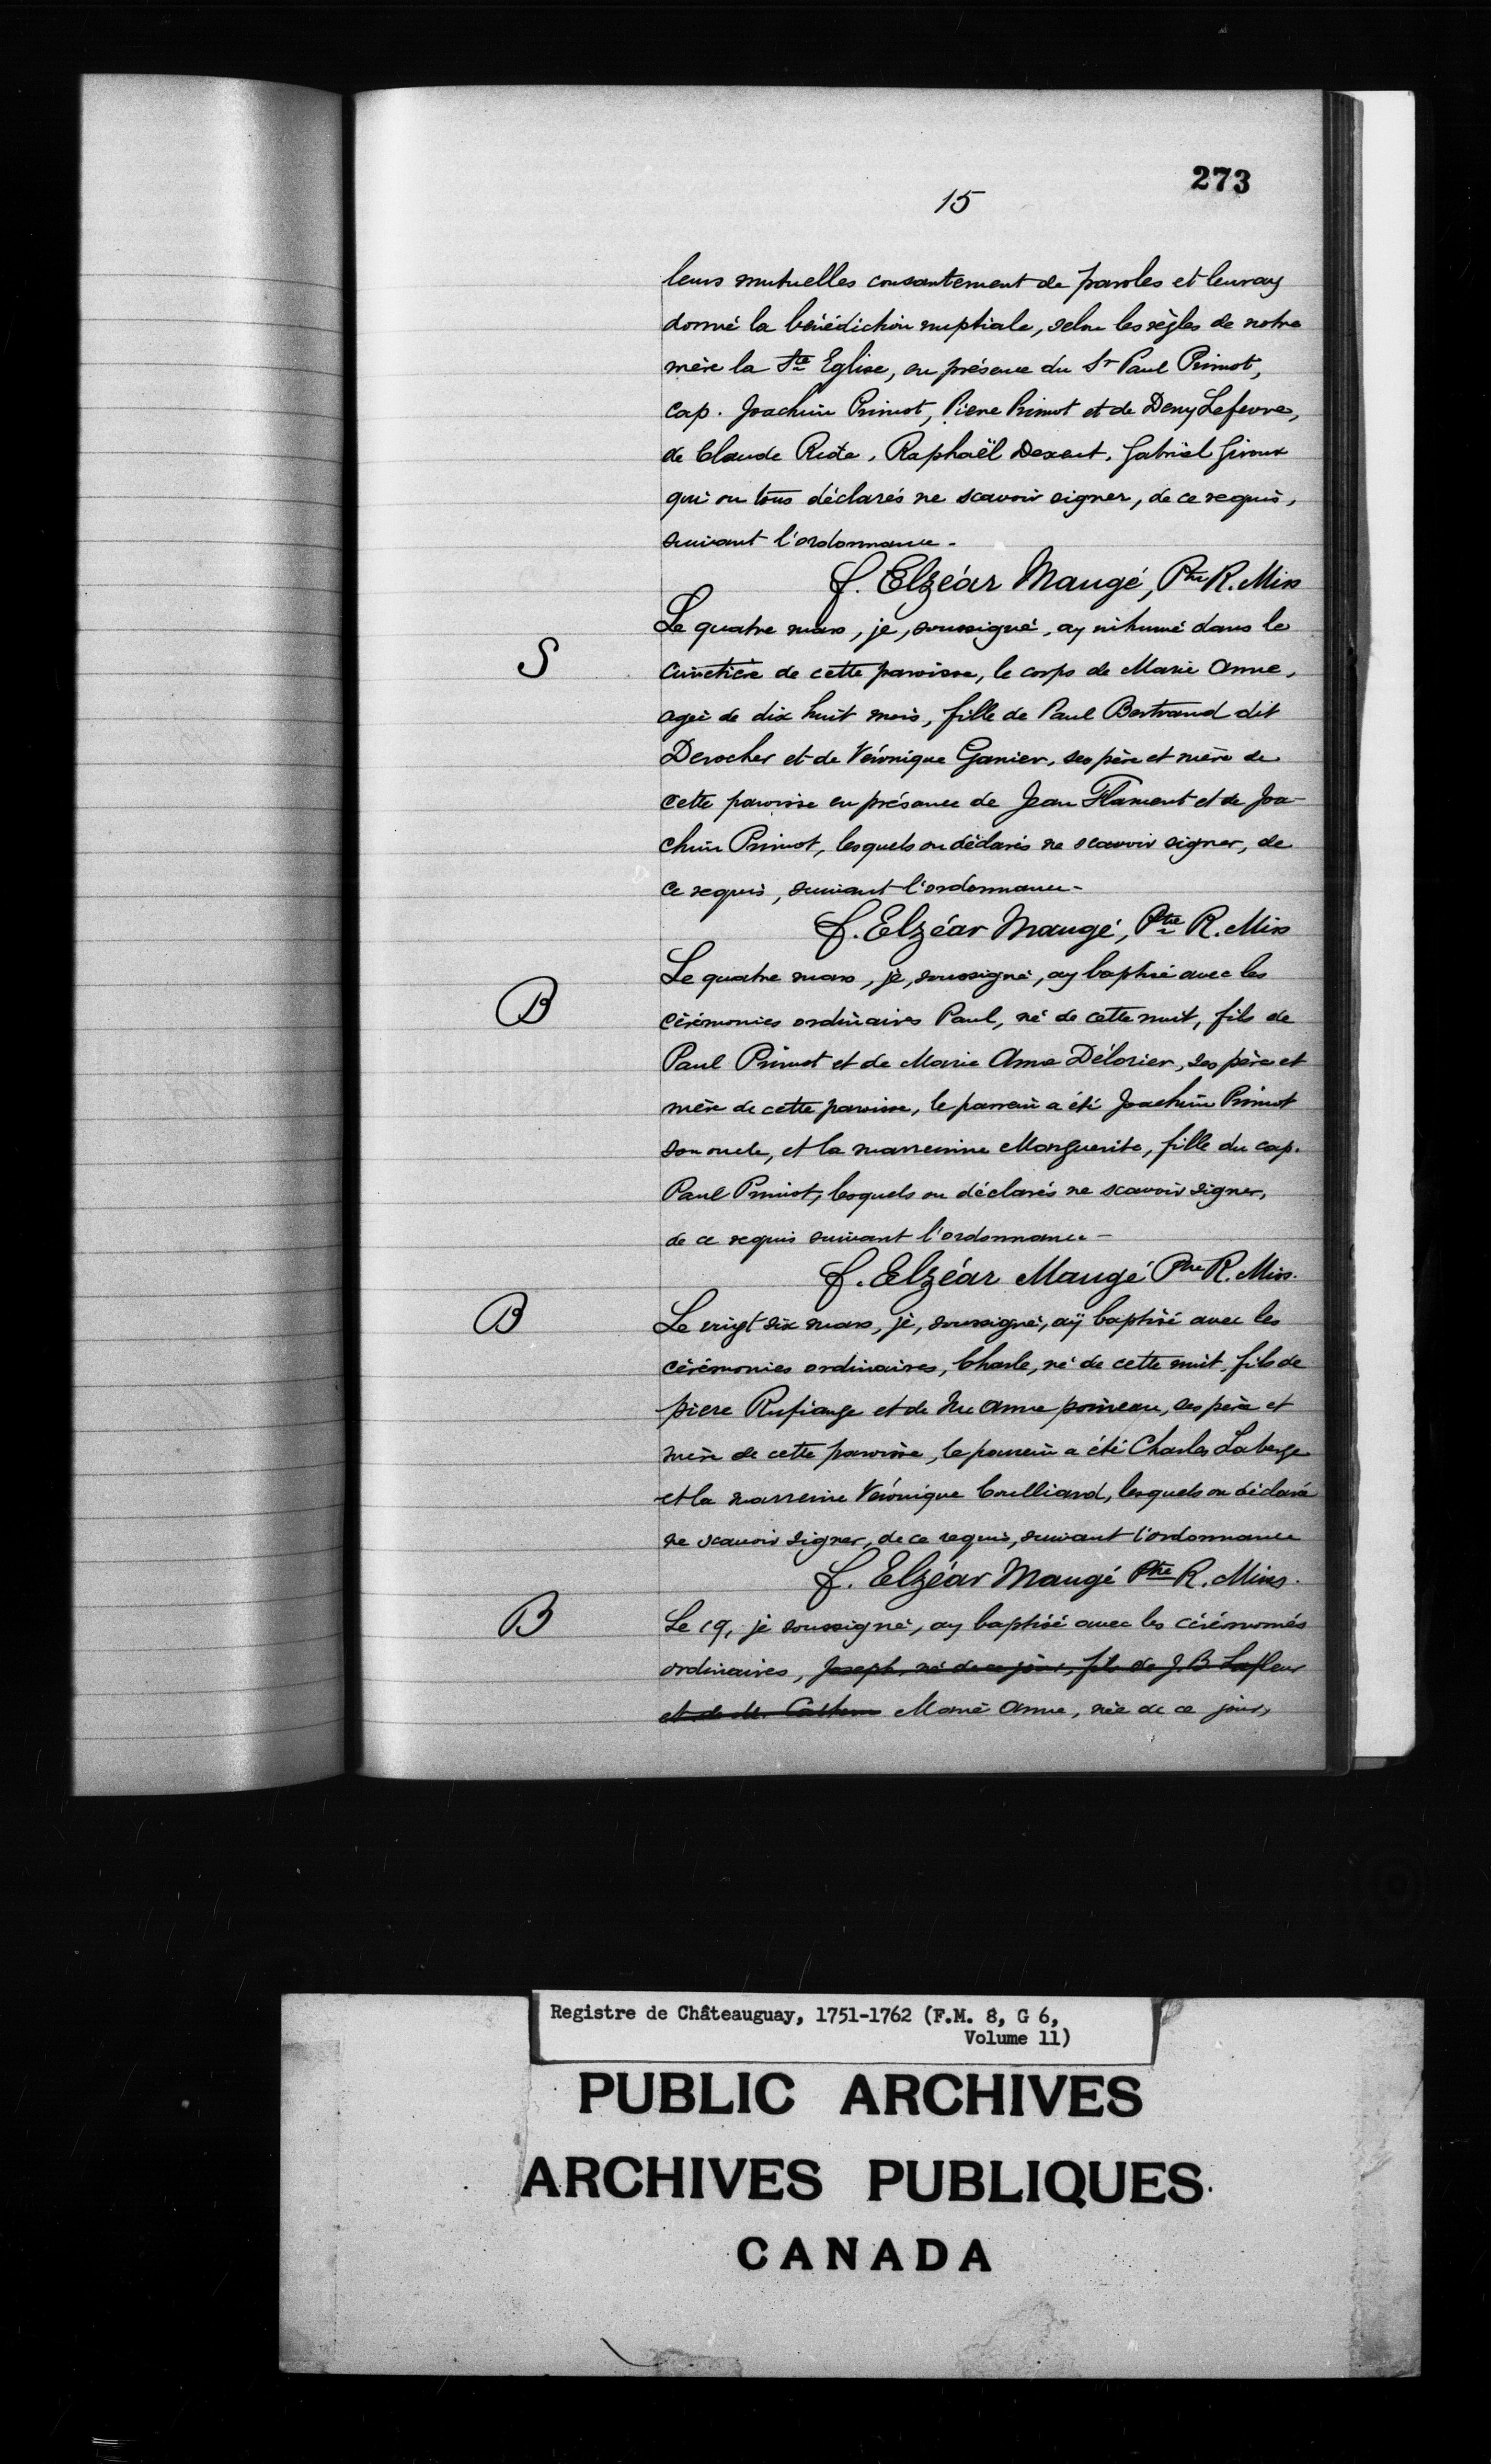 273
15
leurs mutuelles consantement de paroles et leur ay
donné la bénédiction nuptiale, selon les règles de notre
mère la Ste Eglise, en présence du Sr Paul Primot,
cap. Joachim Primot, Piere Primot et de Deny Lefevre,
de Claude Rute, Raphaël Dexent, Gabriel Giroux
qui on tous déclarés ne scavoir signer, de ce requis,
suivant l'ordonnance.
f. Elzéar Maugé, Ptre R. Miss
Le quatre mars, je, soussigné, ay inhumé dans le
S
cimetière de cette paroisse, le corps de Marie Anne,
agée de dix huit mois, fille de Paul Bertrand dit
Derocher et de Véronique Ganier, ses père et mère de
cette paroisse en présance de Jean Flament et de Joa-
chim Primot, lesquels on déclarés ne scavoir signer, de
ce requis, suivant l'ordonnance-
f. Elzéar Maugé, Ptre R. Miss
Le quatre mars, jè, soussigné, ay baptisé avec les
B
cérémonies ordinaires Paul, né de cette nuit, fils de
Paul Primot et de Marie Anne Délorier, ses père et
mère de cette paroisse, le parrain a été Joachim Primot
son oncle, et la marreinne Marguerite, fille du cap.
Paul Primot, lesquels on déclarés ne scavoir signer,
de ce requis suivant l'ordonnance-
f. Elzéar Maugé Ptre R. Miss.
B
Le vingt six mars, jè, soussigné, aÿ baptisé avec les
cérémonies ordinaires, Charle, né de cette nuit, fils de
piere Rufiange et de Me Anne poineau, ses père et
mère de cette paroisse, le parrein a été Charles Laberge
et la marreine Véronique Couilliard, lesquels on déclaré
ne scavoir signer, de ce requis, suivant l'ordonnance
f. Elzéar Maugé Ptre R. Miss.
B
Le 19, jè soussigné, ay baptisé avec les cérémonies
ordinaires, Joseph, né de ce jour, fils de J. B. Lafleur
et de M. Cathern Marie Anne, née de ce jour,
Registre de Châteauguay, 1751-1762 (F.M. 8, G 6,
Volume 11)
PUBLIC ARCHIVES
ARCHIVES PUBLIQUES
CANADA